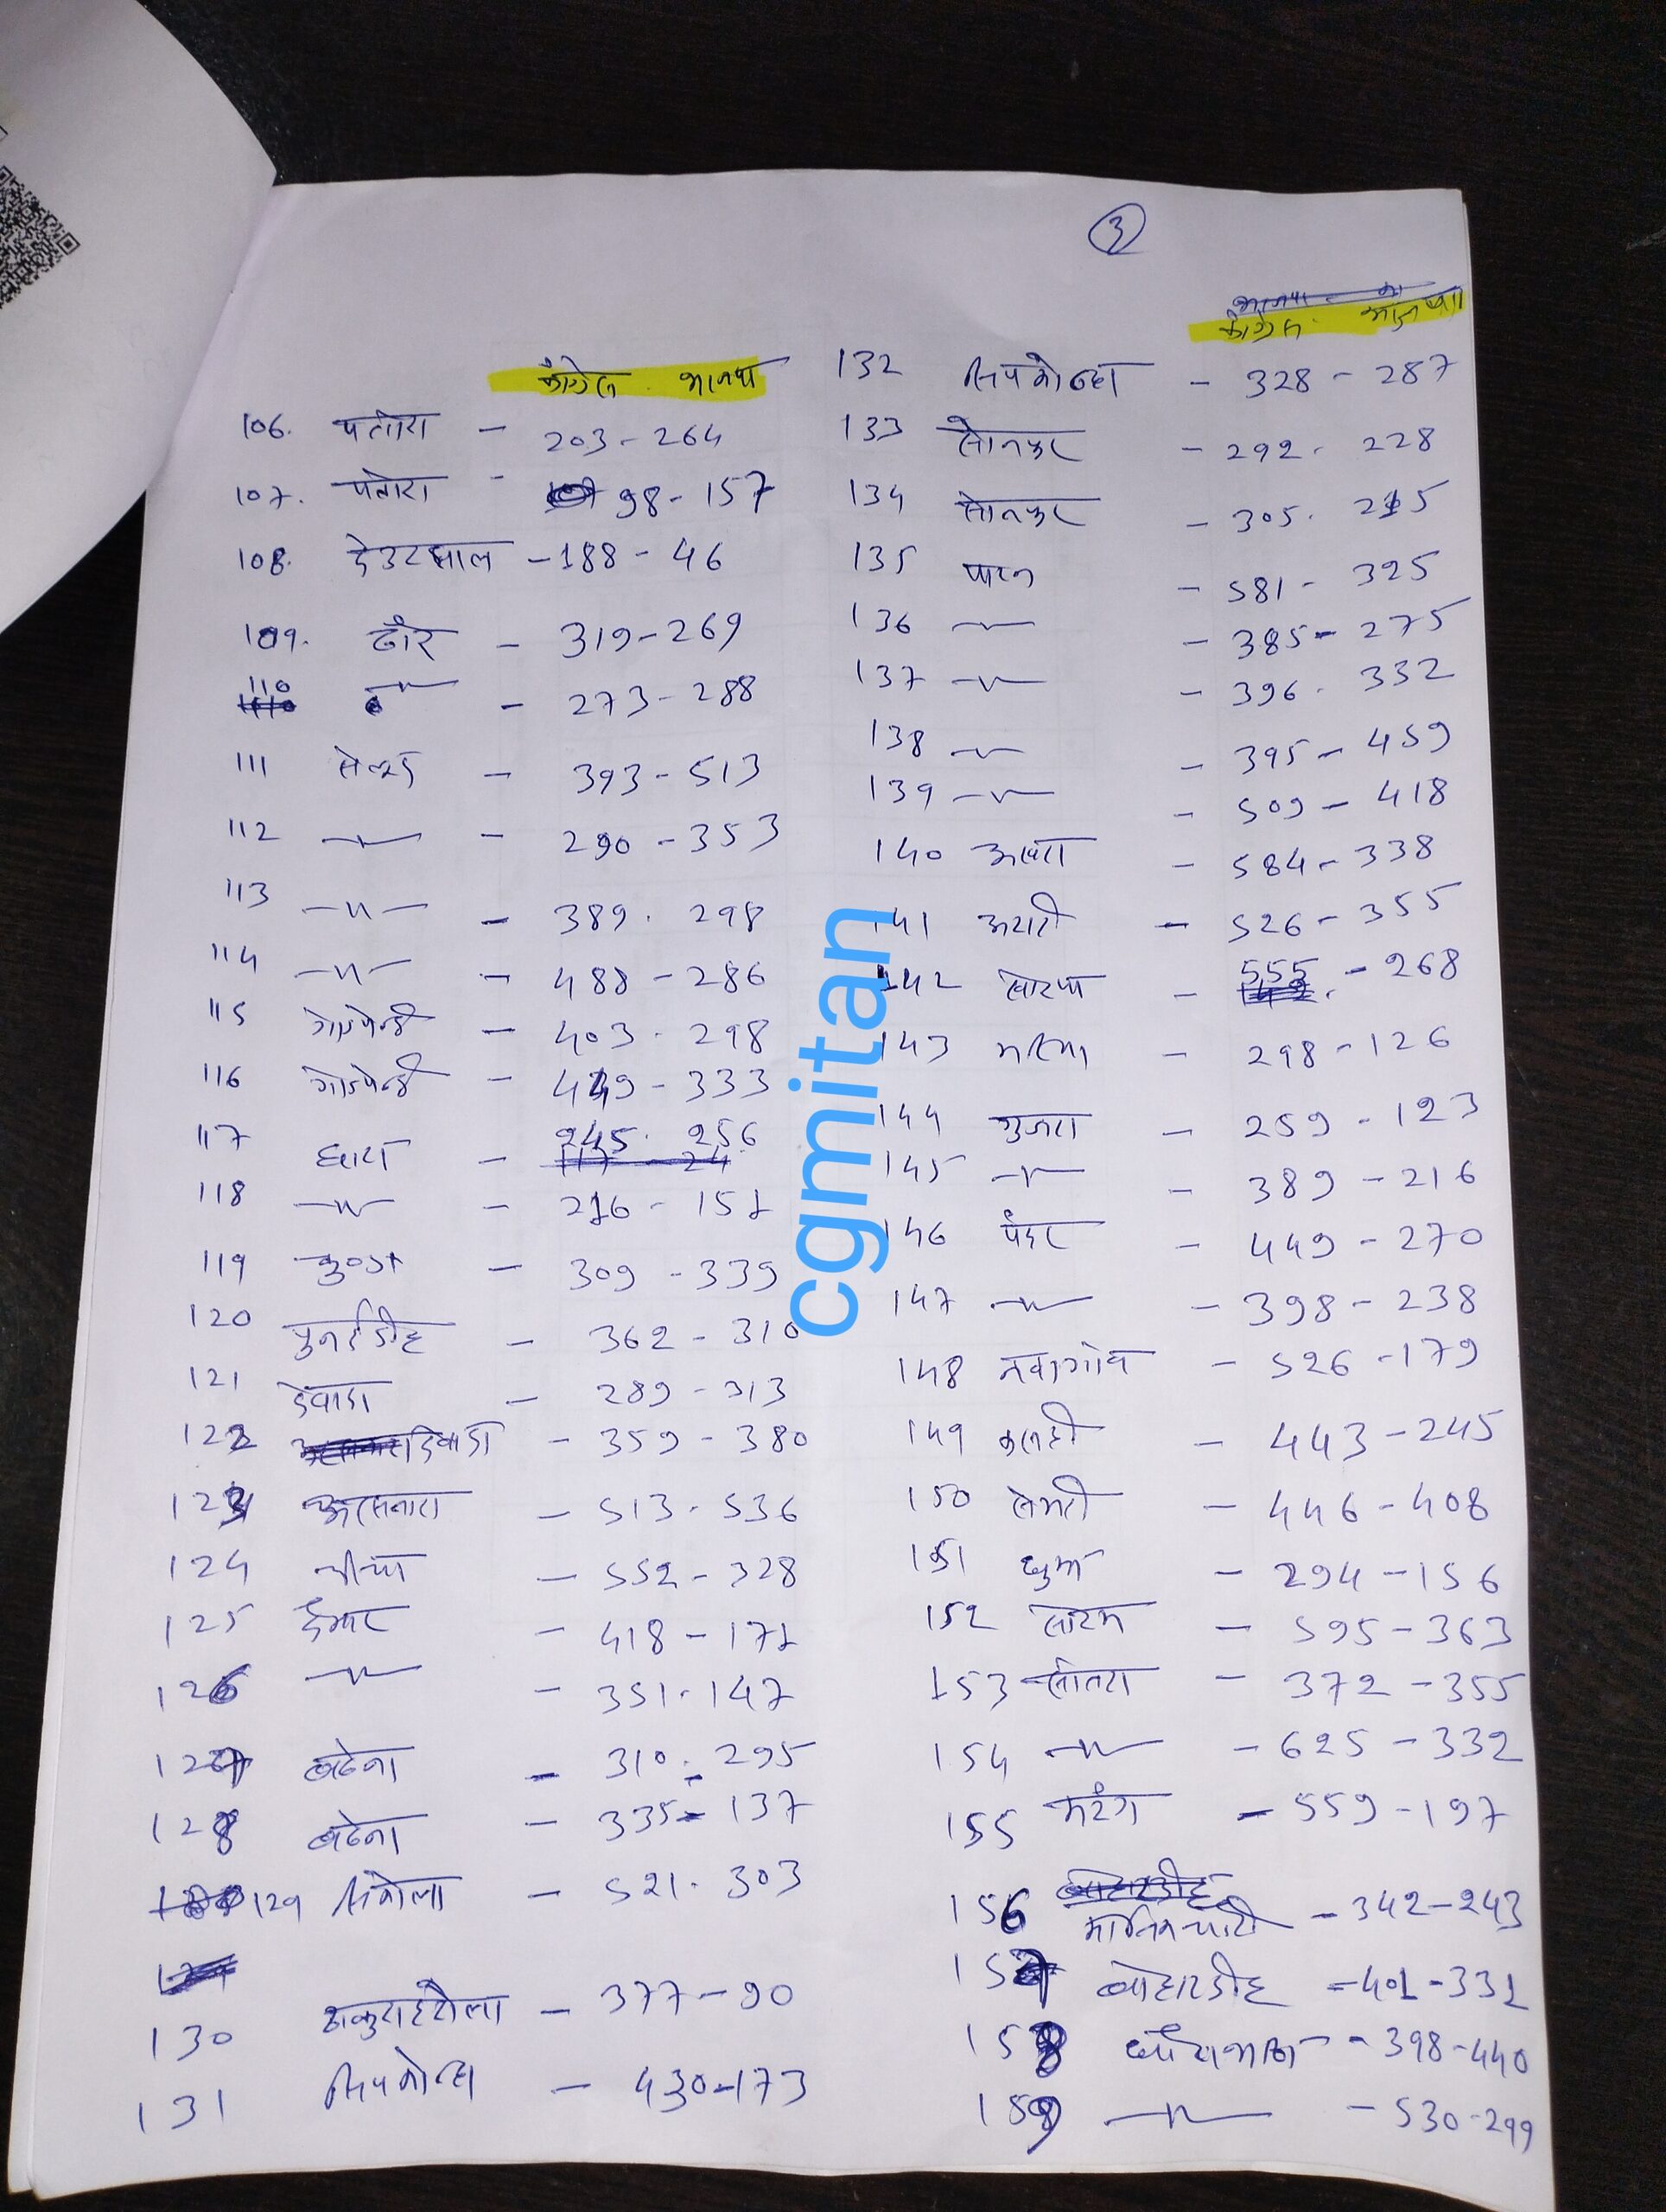 3
कांग्रेस . भाजपा
106. पतोरा - 203 - 264
107. पतोरा - 98 - 157
108. देउरझाल - 188 - 46
109. ढौर - 319 - 269
110 —〃— - 273 - 288
111 सेलूद - 393 - 513
112 —〃— - 290 - 353
113 —〃— - 389 . 298
114 —〃— - 488 - 286
115 गोंडपेन्ड्री - 403 . 298
116 गोंडपेन्ड्री - - 333
117 - 245 . 256
118 —〃— - 216 - 151
119 - 309 - 339
120 - 362 - 310
121 देवादा - 289 - 313
122 देवादा - 359 - 380
123 अरसनारा - 513 - 536
124 चीचा - 552 - 328
125 देमार - 418 - 171
126 —〃— - 351 - 147
127 बठेना - 310 - 295
128 बठेना - 335 - 137
129 सिकोला - 521 . 303
130 ठाकुराईटोला - 377 - 90
131 सिपकोन्हा - 430 - 173
कांग्रेस . भाजपा
132 सिपकोन्हा - 328 - 287
133 सोनपुर - 292 . 228
134 सोनपुर - 305 . 215
135 पाटन - 581 - 325
136 —〃— - 385 - 275
137 —〃— - 396 . 332
138 —〃— - 395 - 459
139 —〃— - 509 - 418
140 अखरा - 584 - 338
141 अटारी - 526 - 355
142 सोरपा - 555 - 268
143 - 298 - 126
144 गुजरा - 259 - 123
145 —〃— - 389 - 216
146 पंदर - 449 - 270
147 —〃— - 398 - 238
148 नवागांव - 526 - 179
149 - 443 - 245
150 सेमरी - 446 - 408
151 धुमा - 294 - 156
152 सोरम - 595 - 363
153 सांतरा - 372 - 355
154 —〃— - 625 - 332
155 करगा - 559 - 197
156 - 342 - 243
157 ब्योहारडीह - 401 - 331
158 धौराभाठा - 398 - 440
159 —〃— - 530 - 299
cgmitan